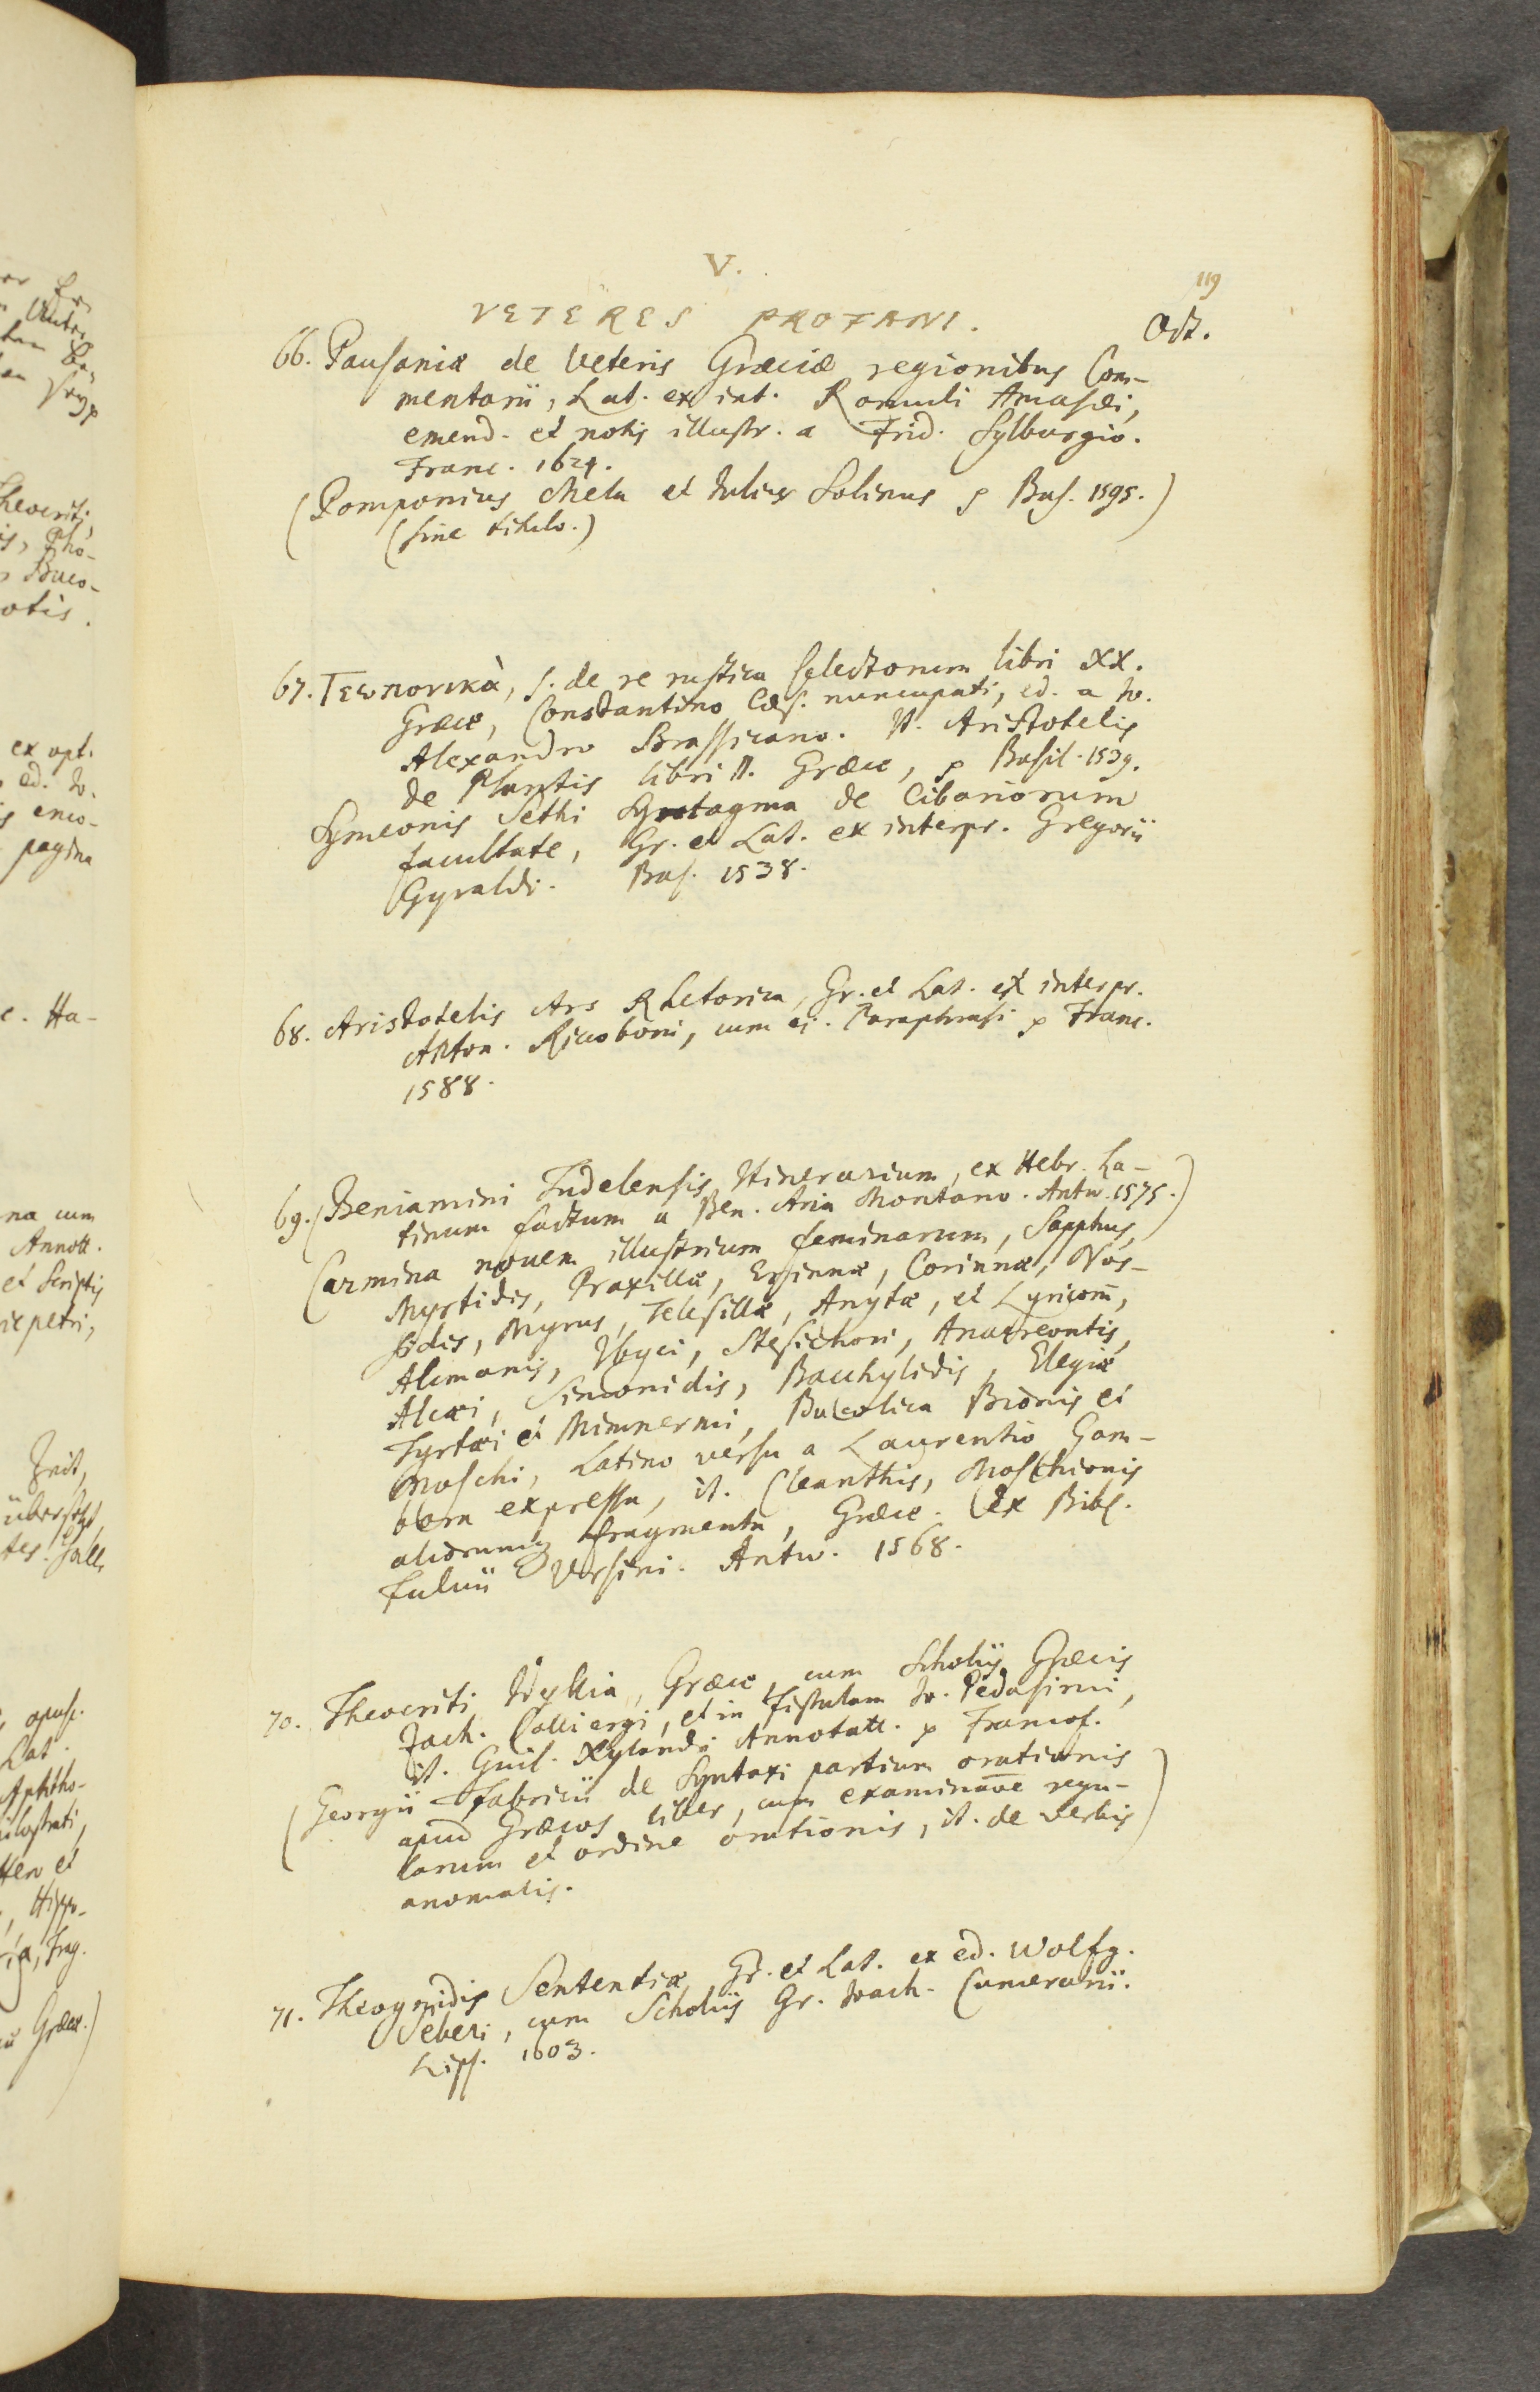 V.
119
VETERES PROFANI.
Oct.
66. Pausaniæ de veteris Græciæ regionibus Com-
mentarii, Lat. ex int. Romuli Amasæi,
emend. et notis illustr. a Frid. Sylburgio.
Franc. 1624.
(Pomponius Mela et Iulius Solinus Bas. 1595.)
(sine titulo.)
67. Γεωπονικὰ, s. de re rustica selectorum libri XX.
Græce, Constantino Cæs. nuncupati, ed. a Io.
Alexandro Brassicano. It. Aristotelis
de Plantis libri II. Græce, Basil. 1539.
Symeonis Sethi Syntagma de Cibariorum
facultate, Gr. et Lat. ex interpr. Gregorii
Gyraldi. Bas. 1538.
68. Aristotelis Ars Rhetorica, Gr. et Lat. ex interpr.
Anton. Riccoboni, cum ej. Paraphrasi Franc.
1588.
69. (Beniamini Tudelensis Itinerarium, ex Hebr. La-
tinum factum a Ben. Aria Montano. Antw. 1575.)
Carmina novem illustrium feminarum, Sapphus,
Myrtidis, Praxillæ, Erinnæ, Corinnæ, Nos-
sidis, Myrus, Telesillæ, Anytæ, et Lyricorū,
Alcmanis, Ibyci, Stesichori, Anacreontis,
Alcæi, Simonidis, Bacchylidis, Elegiæ
Tyrtæi et Mimnermi, Bucolica Bionis et
Moschi, Latino versu a Laurentio Gam-
bara expressa, it. Cleanthis, Moschionis
aliorumq fragmenta, Græce. ex Bibl.
Fulvii Ursini. Antw. 1568.
70. Theocriti Idyllia, Græce, cum Scholiis Græcis
Zach. Calliergi, et in Fistulam Io. Pedasimi,
it. Guil. Xylandri Annotatt. Francof.
(Georgii Fabricii de Syntaxi partium orationis
apud Græcos liber, cum examinat̅e regu-
larum et ordine orationis, it. de verbis)
anomalis.
71. Theognidis Sententiæ Gr. et Lat. ex ed. Wolfg.
Seberi, cum Scholiis Gr. Ioach. Camerarii.
Lips. 1603.